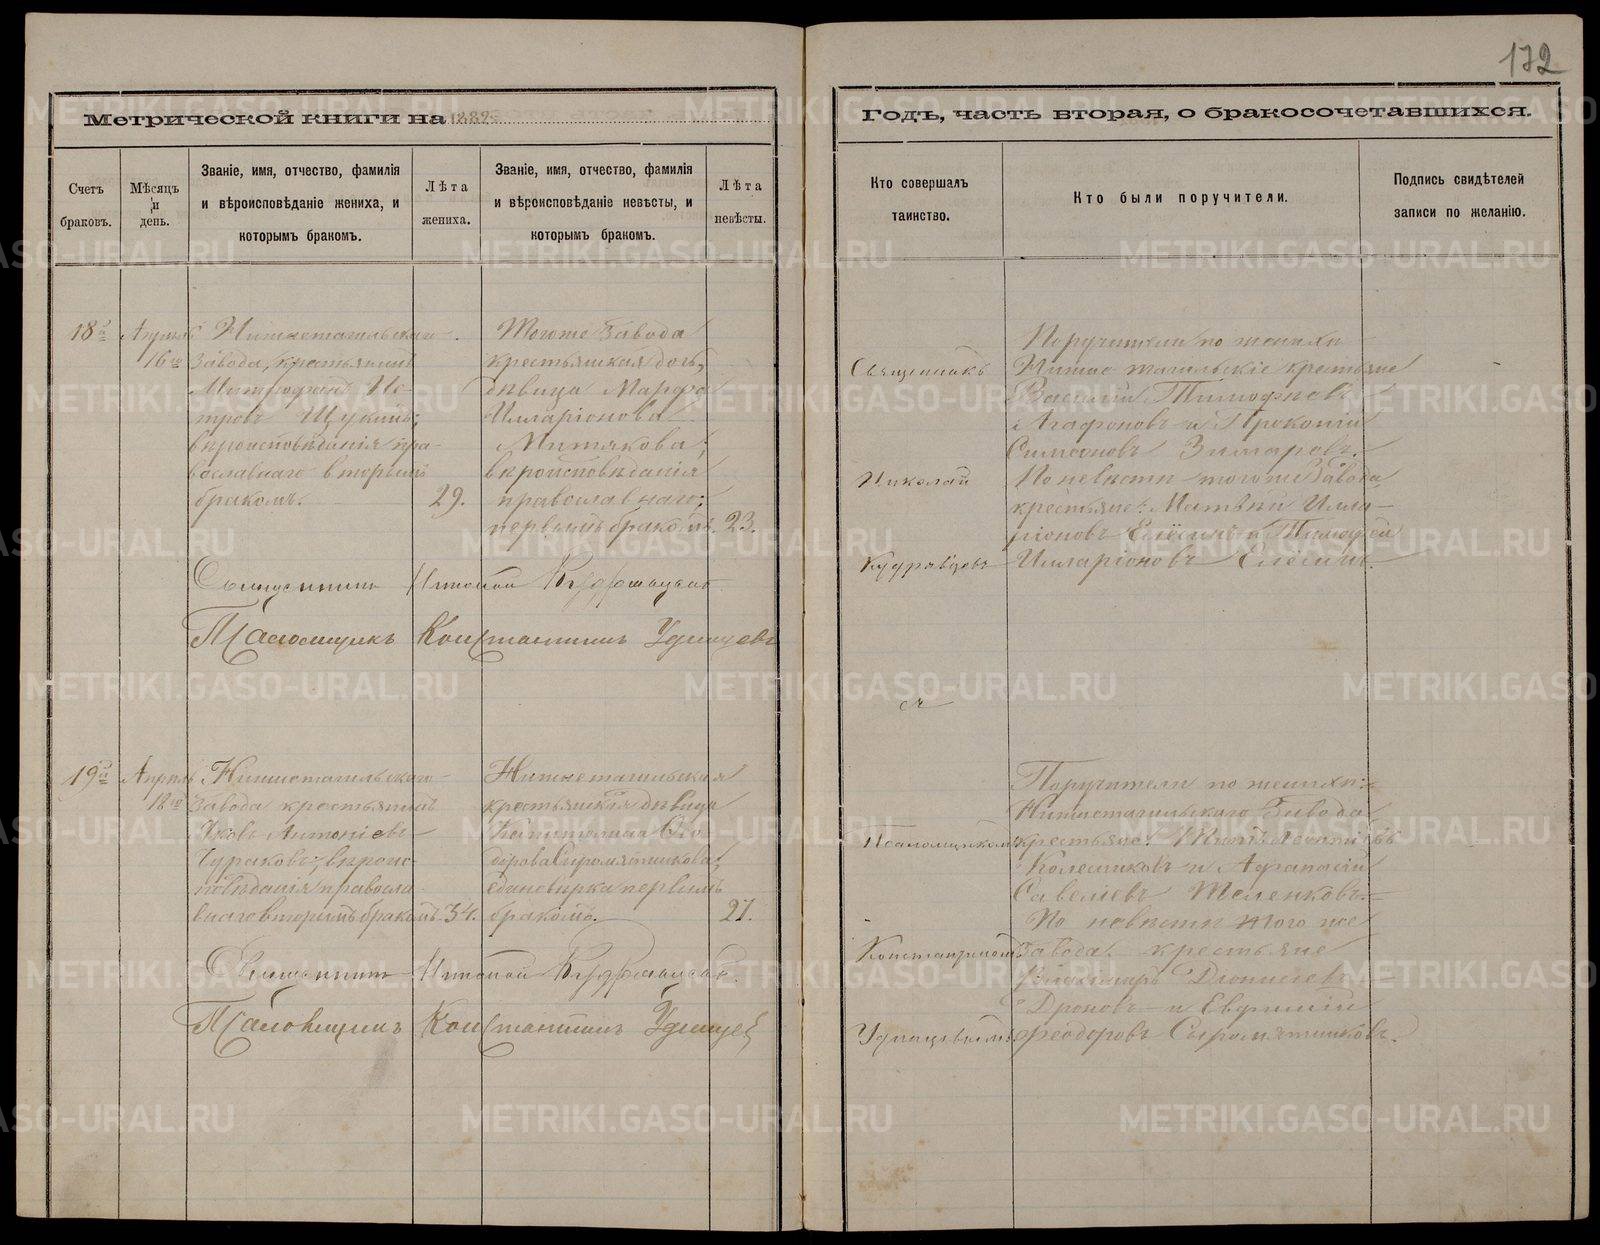 172
Метрической книги на 1889
Годъ, часть вторая, о бракосочетавшихся.
Счетъ браковъ.
Мѣсяцъ и день.
Званіе, имя, отчество, фамилія
и вѣроисповѣданіе жениха, и
которымъ бракомъ.
Лѣта жениха.
Званіе, имя, отчество, фамилія
и вѣроисповѣданіе невѣсты, и
которымъ бракомъ.
Лѣта невѣсты.
Кто совершалъ
таинство.
Кто были поручители.
Подпись свидѣтелей
записи по желанію.
18й
Апрѣль
16го
Нижнетагильскаго
завода, крестьянинъ
Митрофанъ Пе-
тровъ Щукинъ;
вѣроисповѣданія пра-
вославнаго вторымъ
бракомъ.
29.
Тогоже завода
крестьянская дочь,
дѣвица Марфа
Илларіонова
Митякова;
вѣроисповѣданія
православнаго;
первымъ бракомъ.
23.
Священникъ
Николай
Кудрявцевъ
Поручители по женихѣ
Нижнетагильскіе крестьяне
Василій Тимофѣевъ
Агафоновъ и Прокопій
Симеоновъ
По невѣсте тогоже завода
крестьяне: Матвѣй Илла-
ріоновъ и Тимофей
Илларіоновъ
Священникъ Николай Кудрявцевъ
Псаломщикъ Константинъ Удинцевъ
19й
Апрѣль
18го
Нижнетагильскаго
завода крестьянинъ
Яковъ Антоніевъ
Чураковъ; вѣроис-
повѣданія правосла-
внаго вторымъ бракомъ
34.
Нижнетагильская
крестьянская дѣвица
Капитолина Ѳео-
дорова Сыромятникова;
единовѣрка первымъ
бракомъ.
21.
Псаломщикомъ
Константиномъ
Удинцевымъ
Поручители по женихѣ:
Нижнетагильскаго завода
крестьяне: Леонтіевъ
Колесниковъ и Афанасій
Савеліевъ Теленковъ.
По невѣсте того же
завода крестьяне
Діонисіевъ
Дроновъ и Евфимій
Феодоровъ Сыромятниковъ.
Священникъ Николай Кудрявцевъ.
Псаломщикъ Константинъ Удинцевъ
METRIKI.GASO-URAL.RU